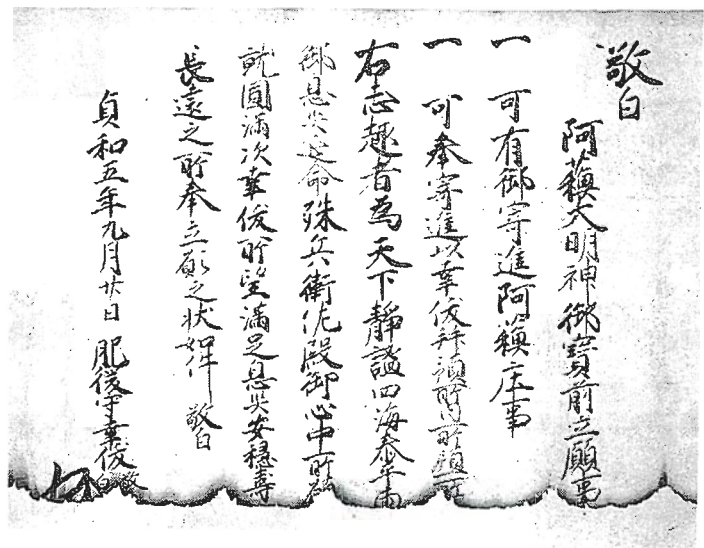 敬白
阿蘓大明神御寳前立願事
一 可有御寄進阿蘓庄事
一 可奉寄進以幸俊拝領所内所領
右志趣者為天下静謐四海泰平両
御息災延命殊兵衛佐殿御心中所願
就圓満次幸俊所望満足息災安穏寿
長遠之所奉立願之状如件 敬白
貞和五年九月廿日 肥後守幸俊敬白